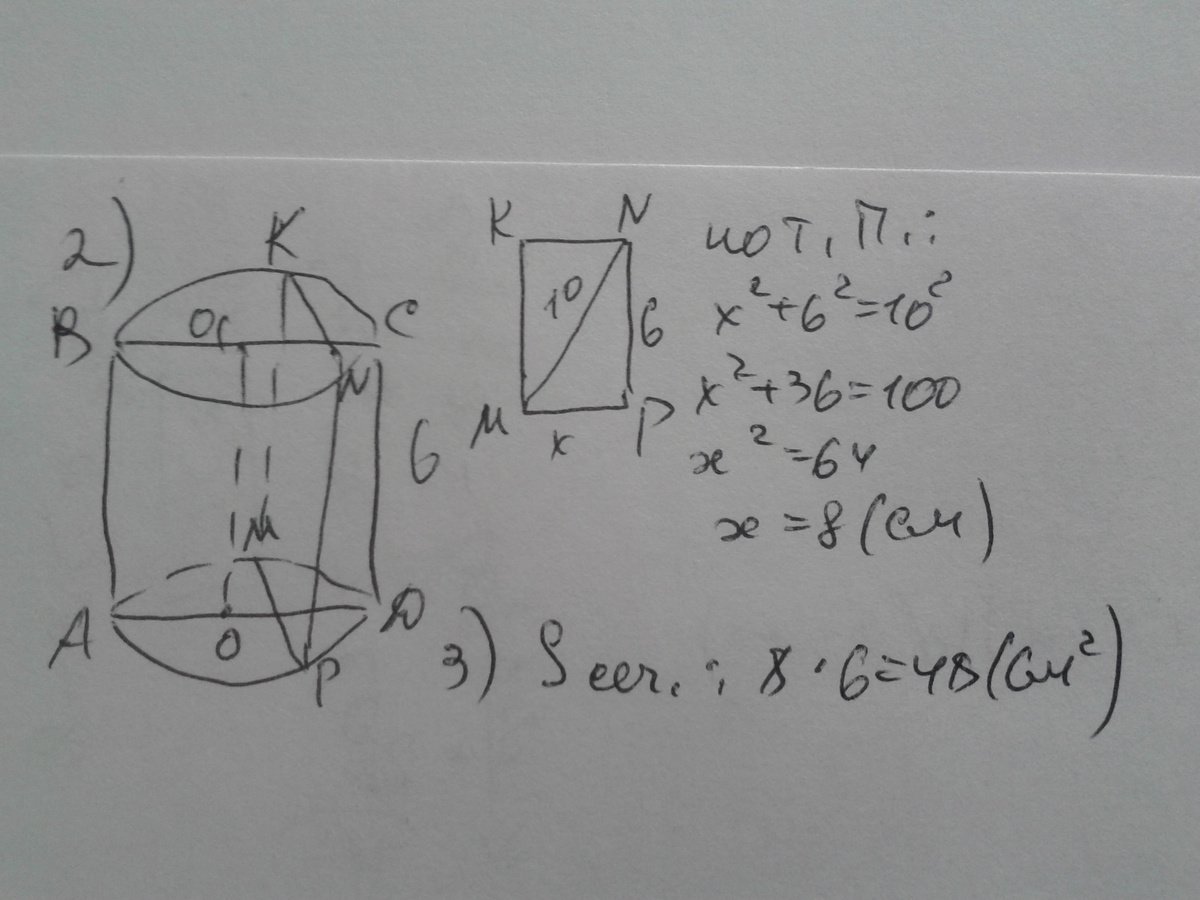 2)
K
B O₁ C
N
6
M
A O D
P
K N
10 6
M x P
по т. П.:
x²+6²=10²
x²+36=100
x²=64
x=8 (см)
3) S сеч.: 8·6=48(см²)